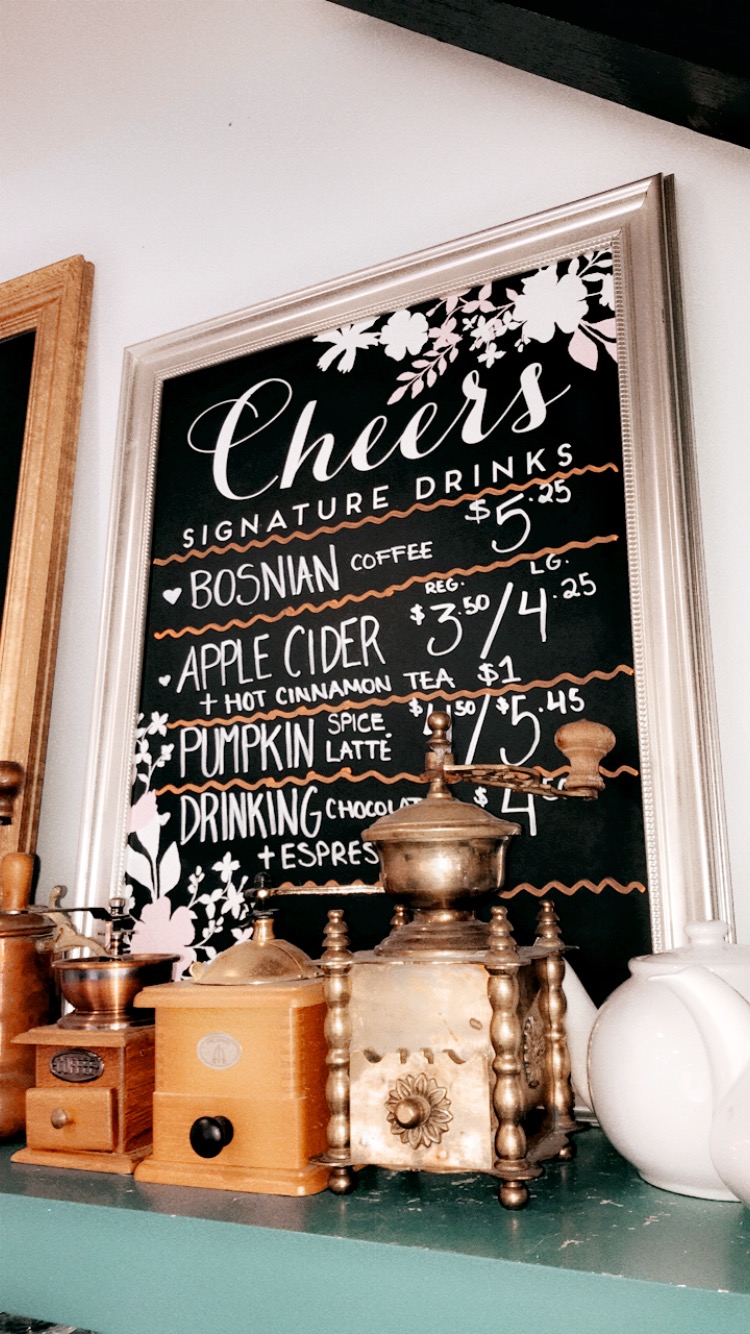 Cheers
SIGNATURE DRINKS
BOSNIAN COFFEE $5.25
REG. LG.
APPLE CIDER $3.50/4.25
+ HOT CINNAMON TEA $1
PUMPKIN SPICE LATTE $4.50/$5.45
DRINKING $4